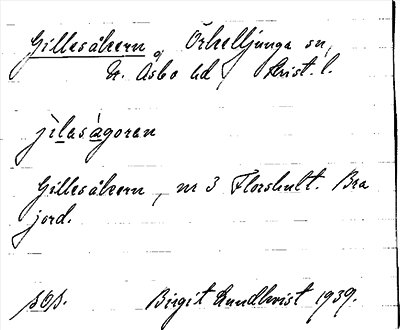 Gillesåkern, Örkelljunga sn,
N. Åsbo hd, Krist. l.
jìlasågoran
Gillesåkern, nr 3 Florshult. Bra
jord.
Birgit Lundkvist 1939.